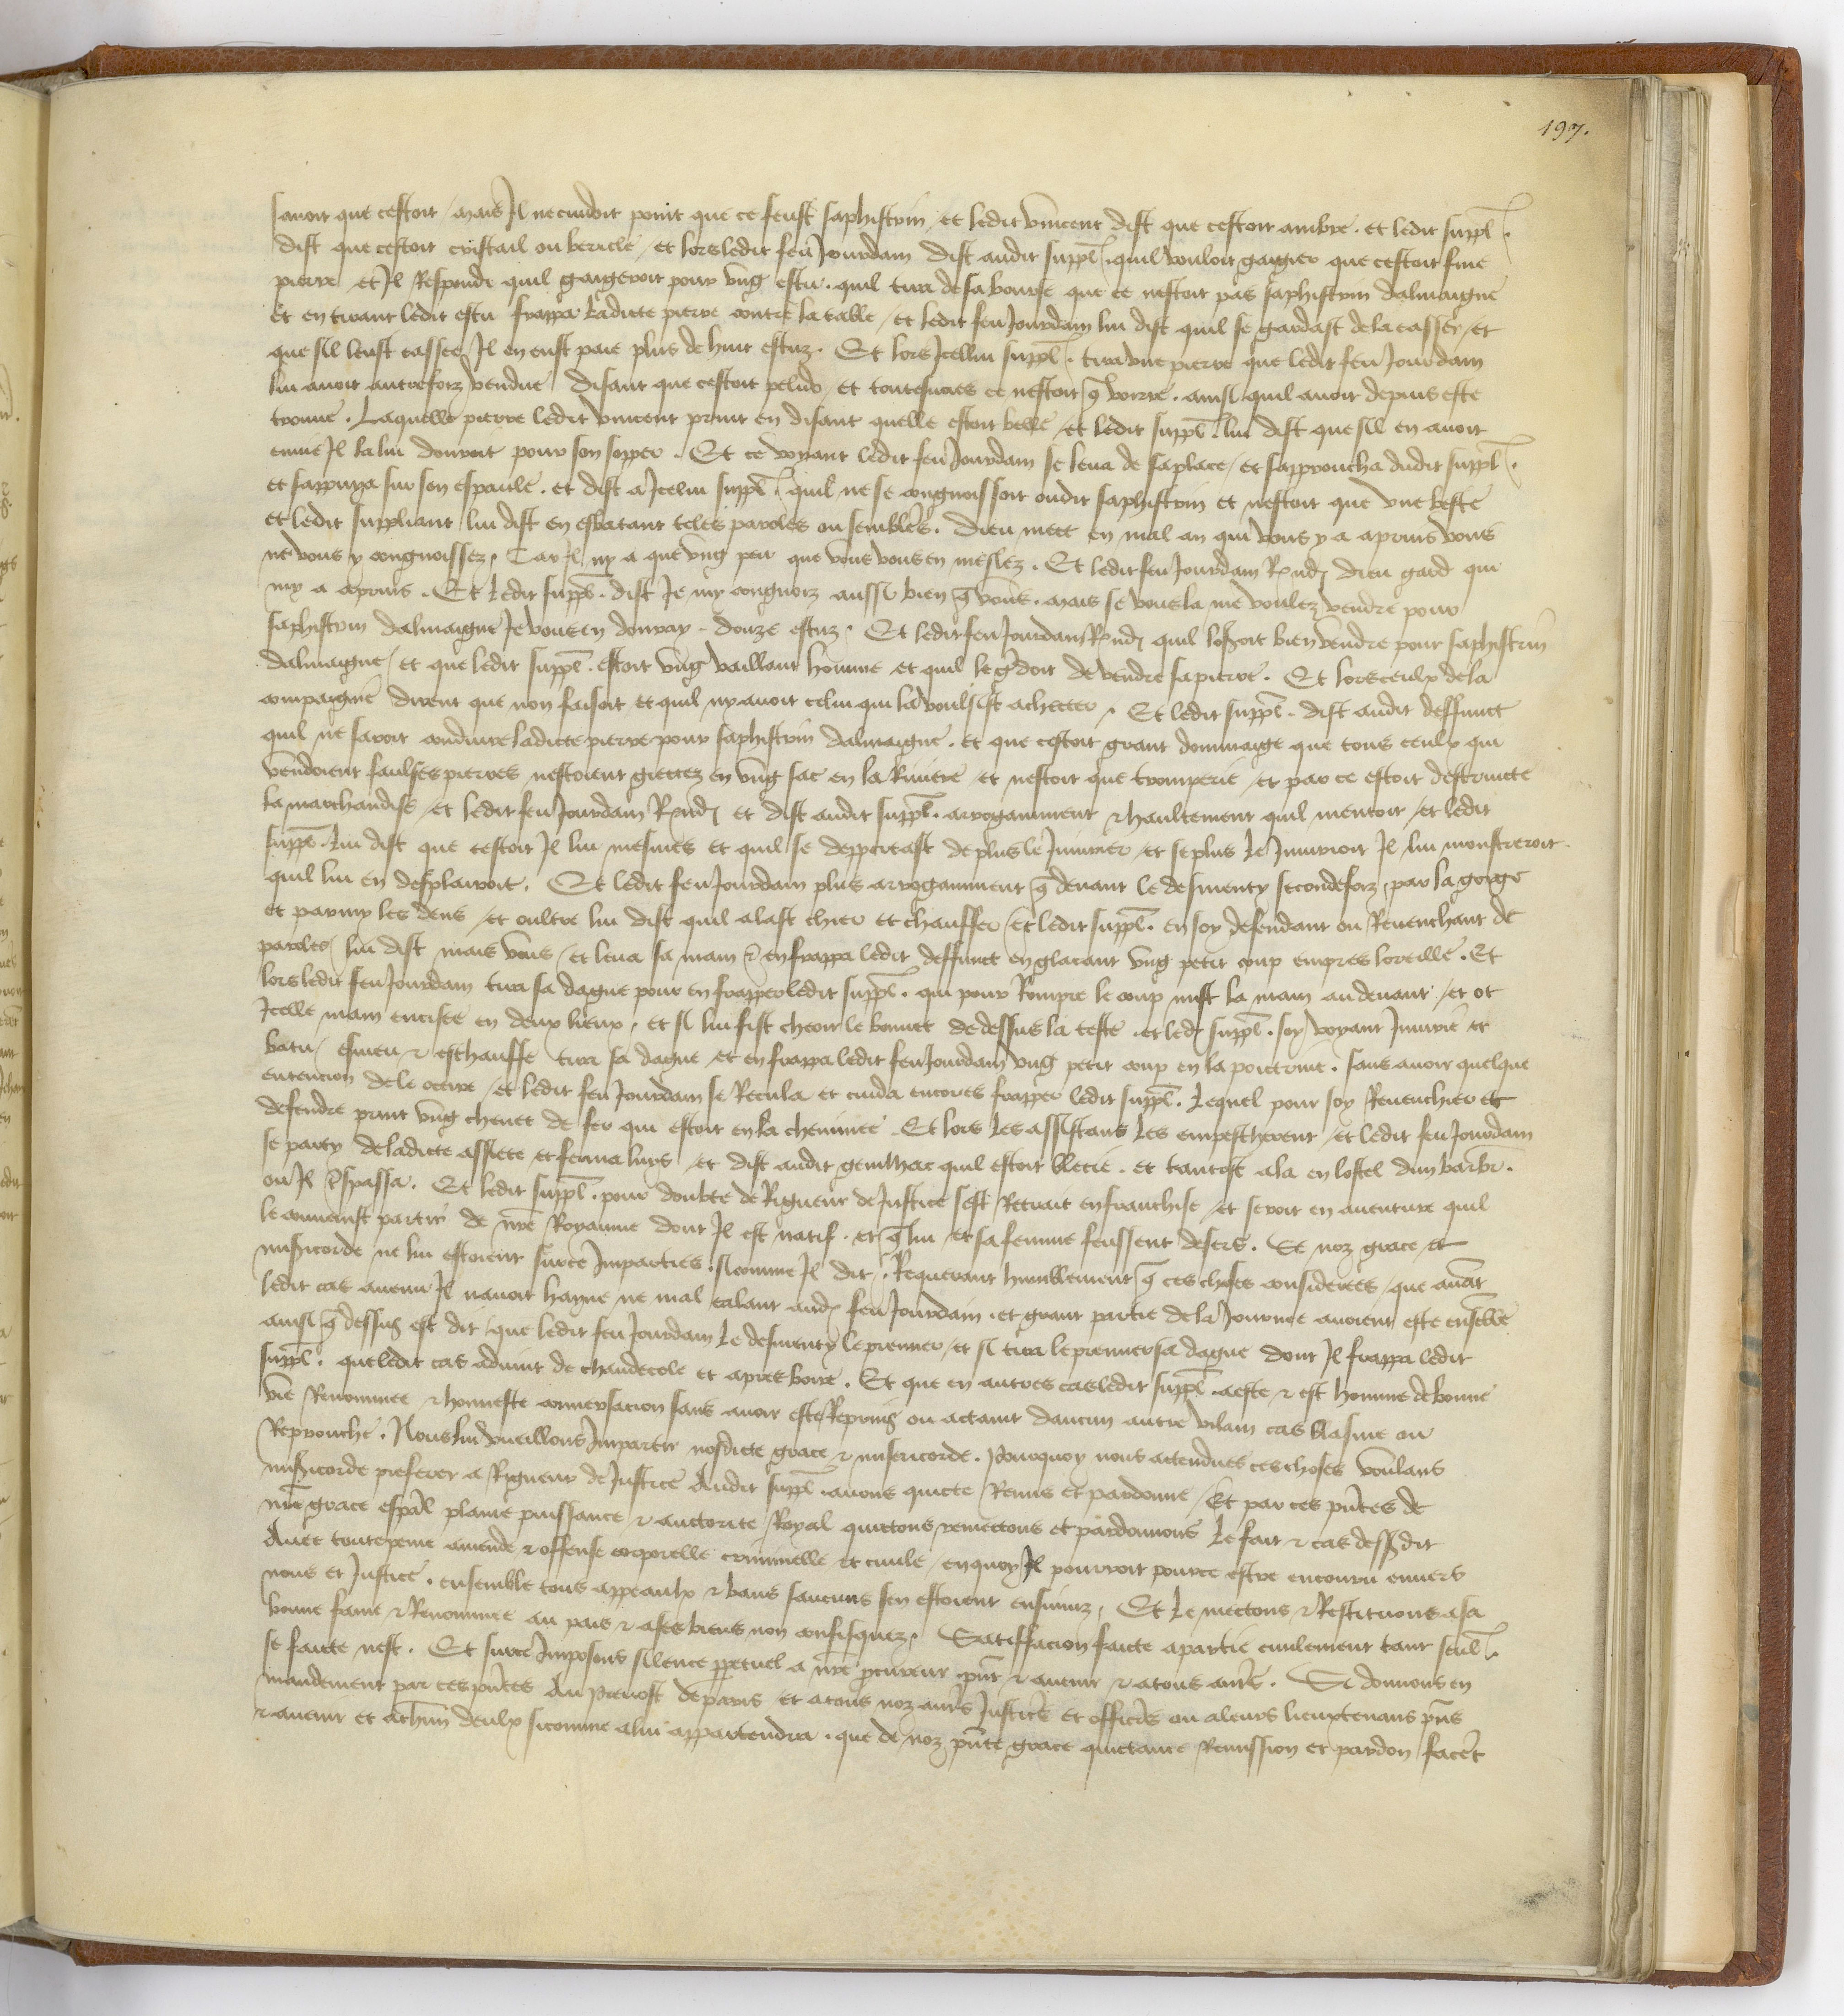 197.
savoir que cestoit / mais Il ne cuidoit point que ce feust saphistrin / et ledit vincent dist que cestoit ambre . et ledit suppl .
dist que cestoit cristail ou bericle / et lors ledit feu Jourdain dist audit suppl . quil vouloit gaigier que cestoit fine
pierre et Il Respondi quil gaigeroit pour ung escu . quil tira de sa bourse que ce nestoit pas saphistrin dalmaigne
Et en tirant ledit escu frappa ladicte pierre contre la table / et ledit feu Jourdain lui dist quil se gardast de la casser / et
que sil leust cassee Il en eust paié plus de huit escuz . Et lors Icellui suppl . tira une pierre que ledit feu Jourdain
lui avoit autreffoiz vendue disant que cestoit / et toutesvoies ce nestoit q voirre . ainsi quil avoit depuis esté
trouvé . Laquelle pierre ledit vincent print en disant quelle estoit belle / et ledit suppl . lui dist que sil en avoit
envie Il la lui donroit pour son sopper . Et ce voyant ledit feu Jourdain se leva de sa place / et sapproucha dudit suppl .
et sappuya sur son espaule . et dist a Icelui suppl . quil ne se congnoissoit oudit saphistrin et nestoit que une beste
et ledit suppliant lui dist en esbatant teles paroles ou semblês . dieu mect en mal an qui vous y a aprins vous
ne vous y congnoissez . Car Il ny a que ung peu que vous vous en meslez . Et ledit feu Jourdain Rndi dieu gard qui
my a aprins . Et ledit suppl . dist Je my congnoiz aussi bien q vous . mais se vous la me voulez vendre pour
saphistrin dalmaigne Je vous en donray douze escuz . Et ledit feu Jourdain Rndi quil loseroit bien vendre pour saphistrin
dalmaigne / et que ledit suppl . estoit ung vaillant homme et quil le gardoit de vendre sa pierre . Et lors ceulx de la
compaignie dirent que non faisoit et quil ny avoit celui qui la voulsist achecter . Et ledit suppl . dist audit deffunct
quil ne savoit conduire ladicte pierre pour saphistrin dalmaigne . et que cestoit grant dommaige que tous ceulx qui
vendoient faulses pierres nestoient giectez en ung sac en la Riviere et nestoit que tromperie / et par ce estoit destruicte
la marchandise / et ledit feu Jourdain Rndi et dist audit suppl . arrogamment & haultement quil mentoit / et ledit
suppl . lui dist que cestoit Il lui mesmes et quil se depportast de plus le Iniurier / et se plus le Iniurioit Il lui monstreroit
quil lui en desplairoit . Et ledit feu Jourdain plus arrogamment q devant le desmenty secondeffoiz par la gorge
et parmy les dens / et oultre lui dist quil alast chier et chauffer / Et ledit suppl . en soy defendant ou Revenchant de
paroles lui dist mais vous / et leva sa main & en frappa ledit deffunct en glacant ung petit coup empres loreille . Et
lors ledit feu Jourdain tira sa dague pour en frapper ledit suppl . qui pour Rompre le coup mist la main audevant / et ot
Icelle main encisee en deux lieux . et si lui fist cheoir le bonnet de dessus la teste . et led suppl . soy voyant Iniurié et
batu / esmeu & eschauffé tira sa dague et en frappa ledit feu Jourdain ung petit coup en la poictrine . sans avoir quelque
entencion de le occire / et ledit feu Jourdain se Recula et cuida encores frapper ledit suppl . Lequel pour soy Revenchier et
defendre print ung chenet de fer qui estoit en la cheminee . Et lors les assistans les empescherent / et ledit feu Jourdain
se party de ladicte assiete et ferma luys / et dist audit genilhac quil estoit blecié . et tantost ala en lostel dun barbr .
ou Il trespassa . Et ledit suppl . pour doubte de Rigueur de Justice sest Retrait en franchise / et seroit en aventure quil
le convenist partir de nre Royaume dont Il est natif . et q lui et sa femme feussent desers . Se noz grace et
misericorde ne lui estoient surce Imparties . sicomme Il dit . Requerant humblement q ces choses considerees / que avat
ledit cas avenu Il navoit hayne ne mal talant aud feu Jourdain . et grant partie de la Journee avoient esté ensemble
ainsi q dessus est dit / que ledit feu Jourdain le desmenty le premier / et si tira le premier sa dague dont Il frappa ledit
suppl . que ledit cas advint de chaudecole et apres boire . Et que en autres cas ledit suppl . a esté & est homme de bonne
vie Renommee & honneste conversacion sans avoir esté Reprins ou actaint daucun autre vilain cas blasme ou
Reprouche . Nous lui vueillons Impartir nosdicte grace & misericorde . Pourquoy nous actendues ces choses voulans
misericorde preferer a Rigueur de Justice Audit suppl . avons quicté Remis et pardonné / Et par ces pntes de
nre grace espal plaine puissance & auctorite Royal quictons remectons et pardonnons le fait & cas dessusdit
Avec toute peine amende & offense corporelle criminelle et civile / en quoy Il pourroit pource estre encouru envers
nous et Justice . ensemble tous appeaulx & bans saucuns sen estoient ensuiviz . Et le mectons & Restituons a sa
bonne fame & Renommee au pais & a ses biens non confisquez . Satisfacion faicte a partie civilement tant seul .
se faicte nest . Et surce Imposons silence ppetuel a nre pcureur pnt & avenir & a tous autrs . Si donnons en
mandement par ces pntes Au prevost de paris et a tous noz autrs Justicrs et officrs ou a leurs lieuxtenans pns
& avenir et a chun deulx sicomme a lui appartendra . que de noz pnte grace quictance Remission et pardon facet